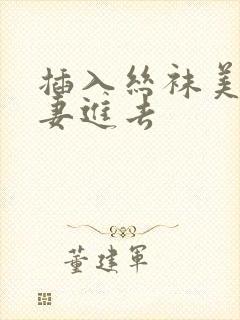 插入丝袜美
妻进去
董建军